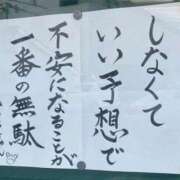 しなくて
いい予想で
不安になることが
一番の無駄